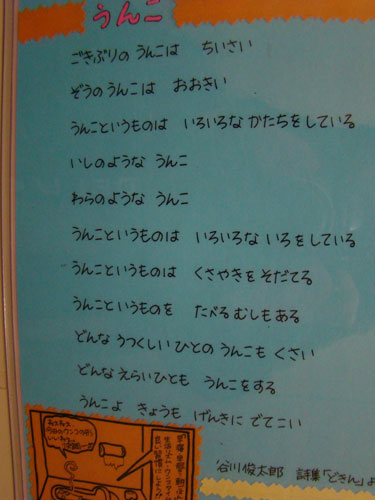 うんこ
ごきぶりの うんこは ちいさい
ぞうの うんこは おおきい
うんこというものは いろいろな かたちをしている
いしのような うんこ
わらのような うんこ
うんこというものは いろいろな いろをしている
うんこというものは くさやきを そだてる
うんこというものを たべる むしもある
どんな うつくしい ひとの うんこも くさい
どんな えらいひとも うんこをする
うんこよ きょうも げんきに でてこい
谷川俊太郎 詩集「どきん」よ